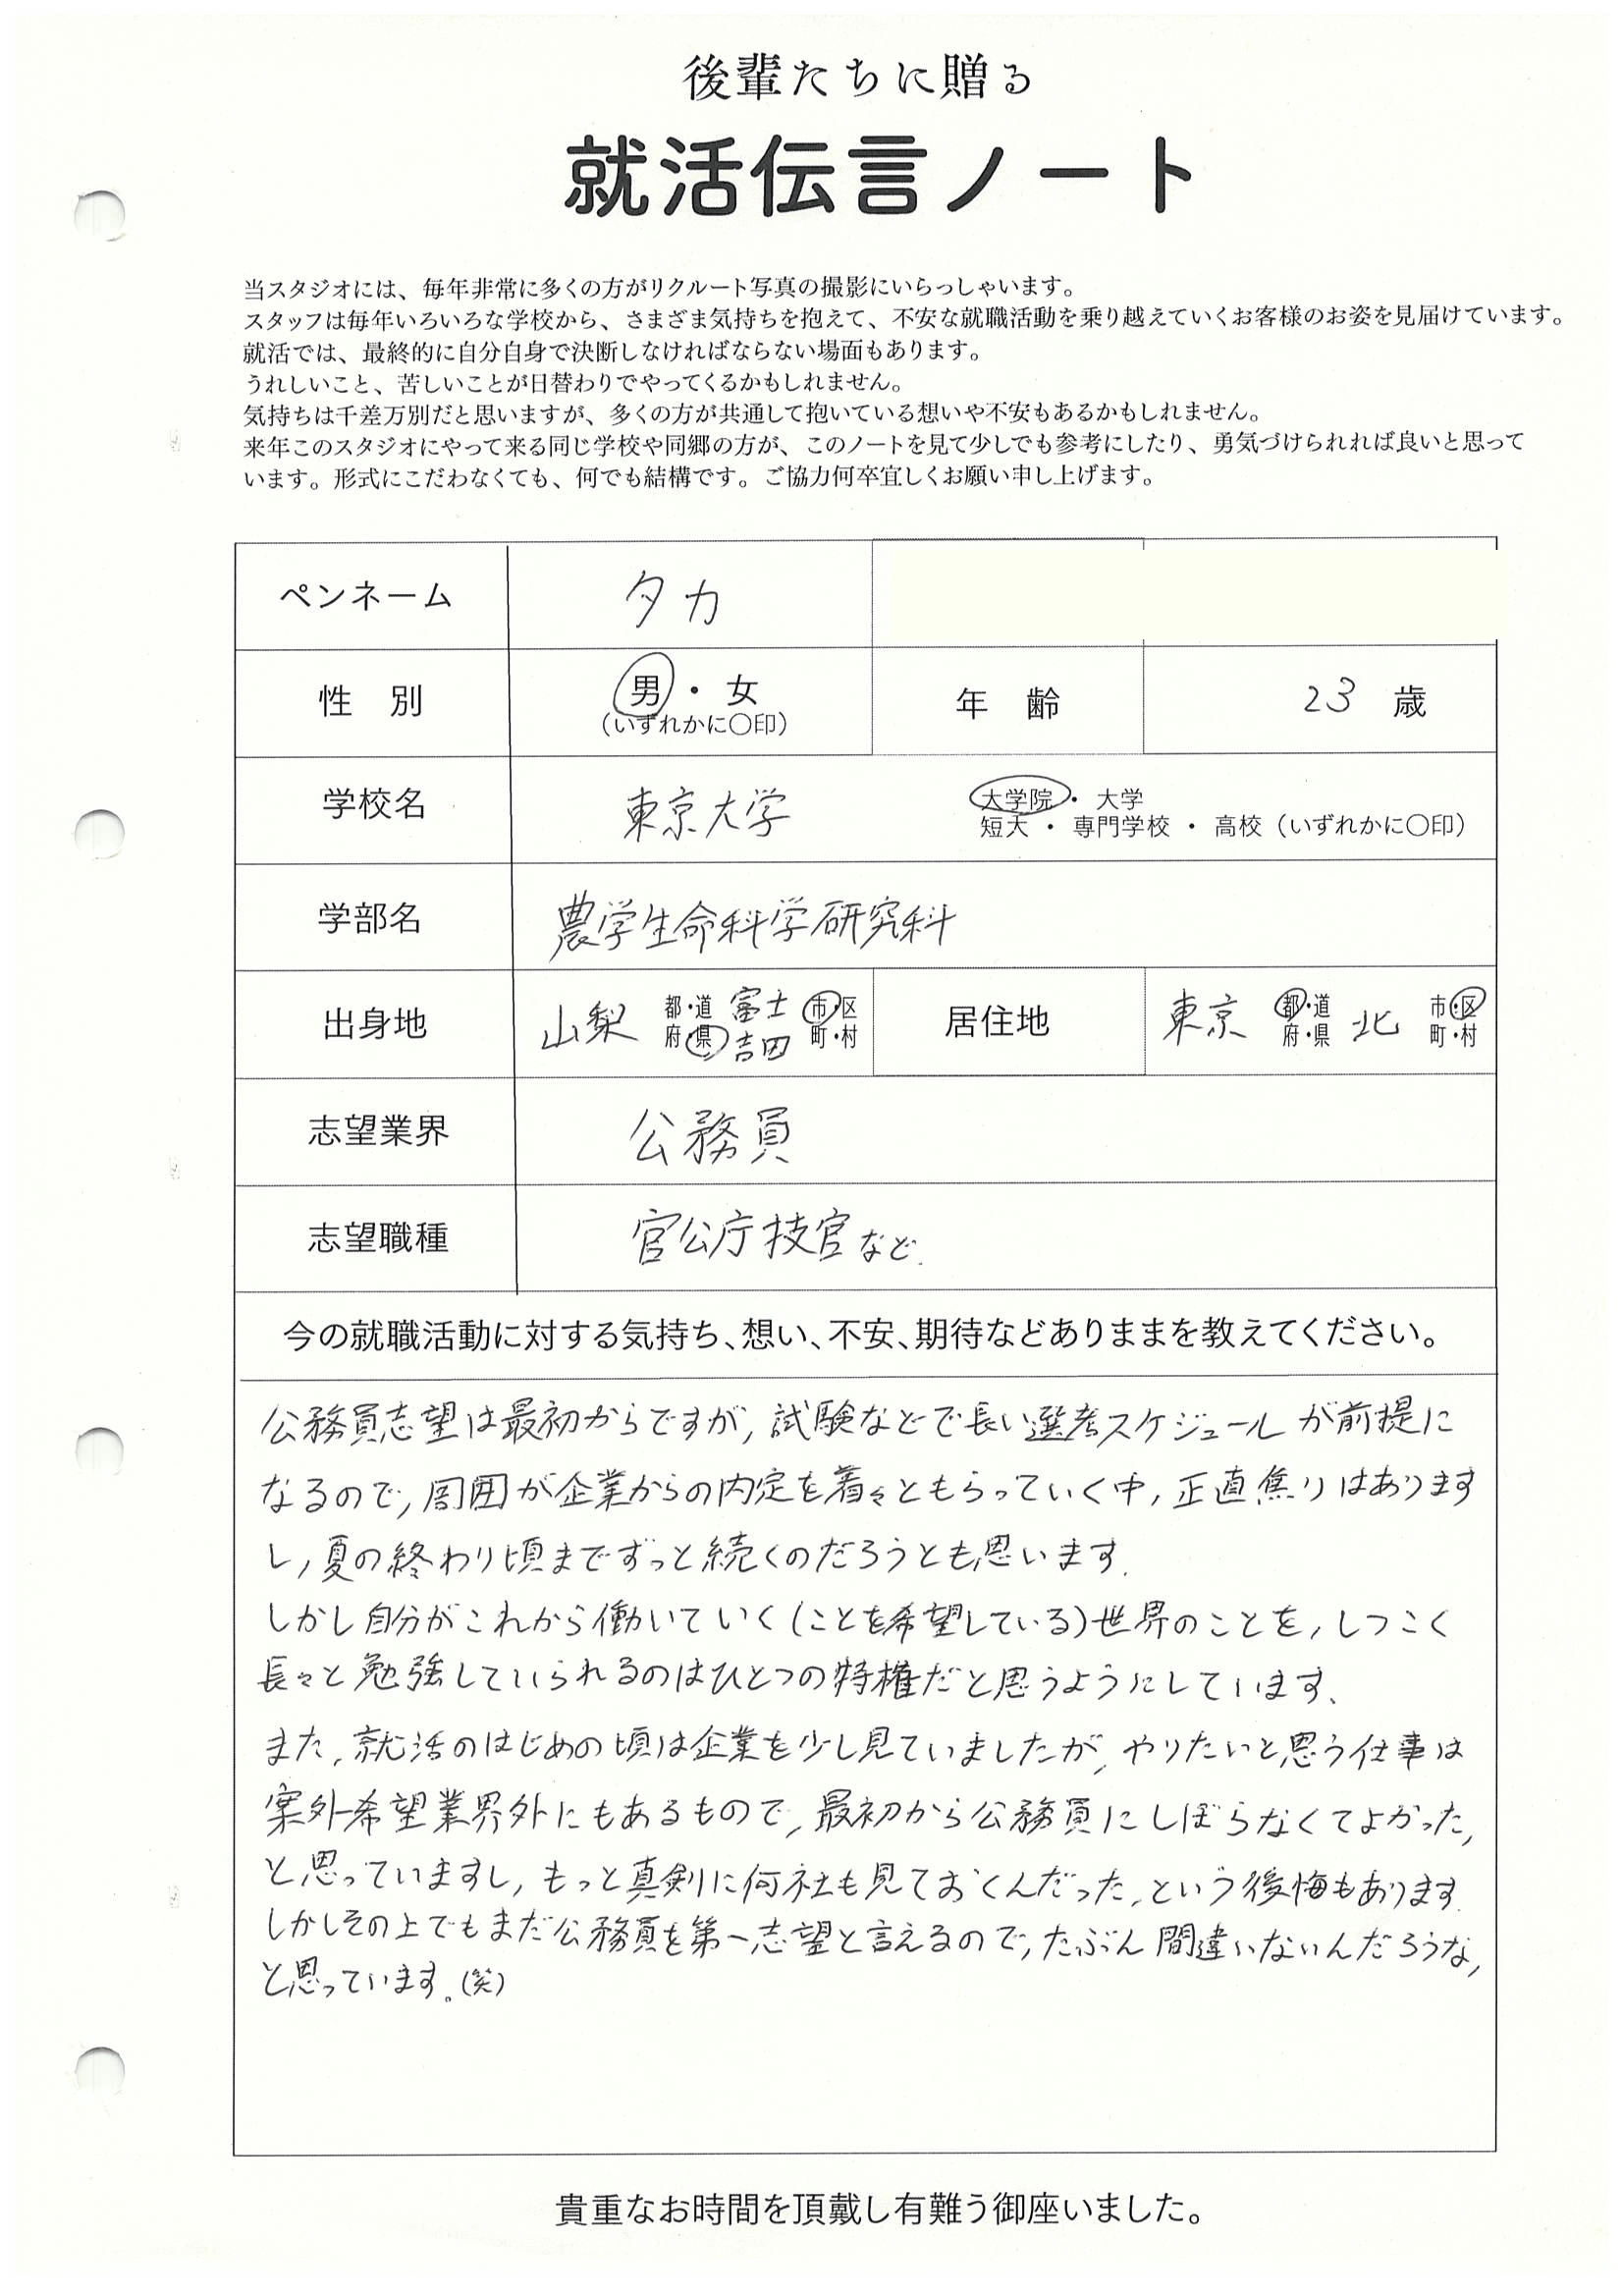 後輩たちに贈る
就活伝言ノート
当スタジオには、毎年非常に多くの方がリクルート写真の撮影にいらっしゃいます。
スタッフは毎年いろいろな学校から、さまざま気持ちを抱えて、不安な就職活動を乗り越えていくお客様のお姿を見届けています。
就活では、最終的に自分自身で決断しなければならない場面もあります。
うれしいこと、苦しいことが日替わりでやってくるかもしれません。
気持ちは千差万別だと思いますが、多くの方が共通して抱いている想いや不安もあるかもしれません。
来年このスタジオにやって来る同じ学校や同郷の方が、このノートを見て少しでも参考にしたり、勇気づけられれば良いと思って
います。形式にこだわなくても、何でも結構です。ご協力何卒宜しくお願い申し上げます。
ペンネーム タカ
性 別 男・女 (いずれかに〇印) 年 齢 23 歳
学校名 東京大学 大学院・大学
短大・専門学校・高校(いずれかに〇印)
学部名 農学生命科学研究科
出身地 山梨 都・道府・県 富士吉田 市・区町・村 居住地 東京 都・道府・県 北 市・区町・村
志望業界 公務員
志望職種 官公庁技官など.
今の就職活動に対する気持ち、想い、不安、期待などありままを教えてください。
公務員志望は最初からですが, 試験などで長い選考スケジュールが前提に
なるので, 周囲が企業からの内定を着々ともらっていく中, 正直焦りはあります
し, 夏の終わり頃までずっと続くのだろうとも思います.
しかし自分がこれから働いていく(ことを希望している)世界のことを, しつこく
長々と勉強していられるのはひとつの特権だと思うようにしています.
また, 就活のはじめの頃は企業を少し見ていましたが, やりたいと思う仕事は
案外希望業界外にもあるもので, 最初から公務員にしぼらなくてよかった,
と思っていますし, もっと真剣に何社も見ておくんだった, という後悔もあります.
しかしその上でもまだ公務員を第一志望と言えるので, たぶん間違いないんだろうな,
と思っています。(笑)
貴重なお時間を頂戴し有難う御座いました。